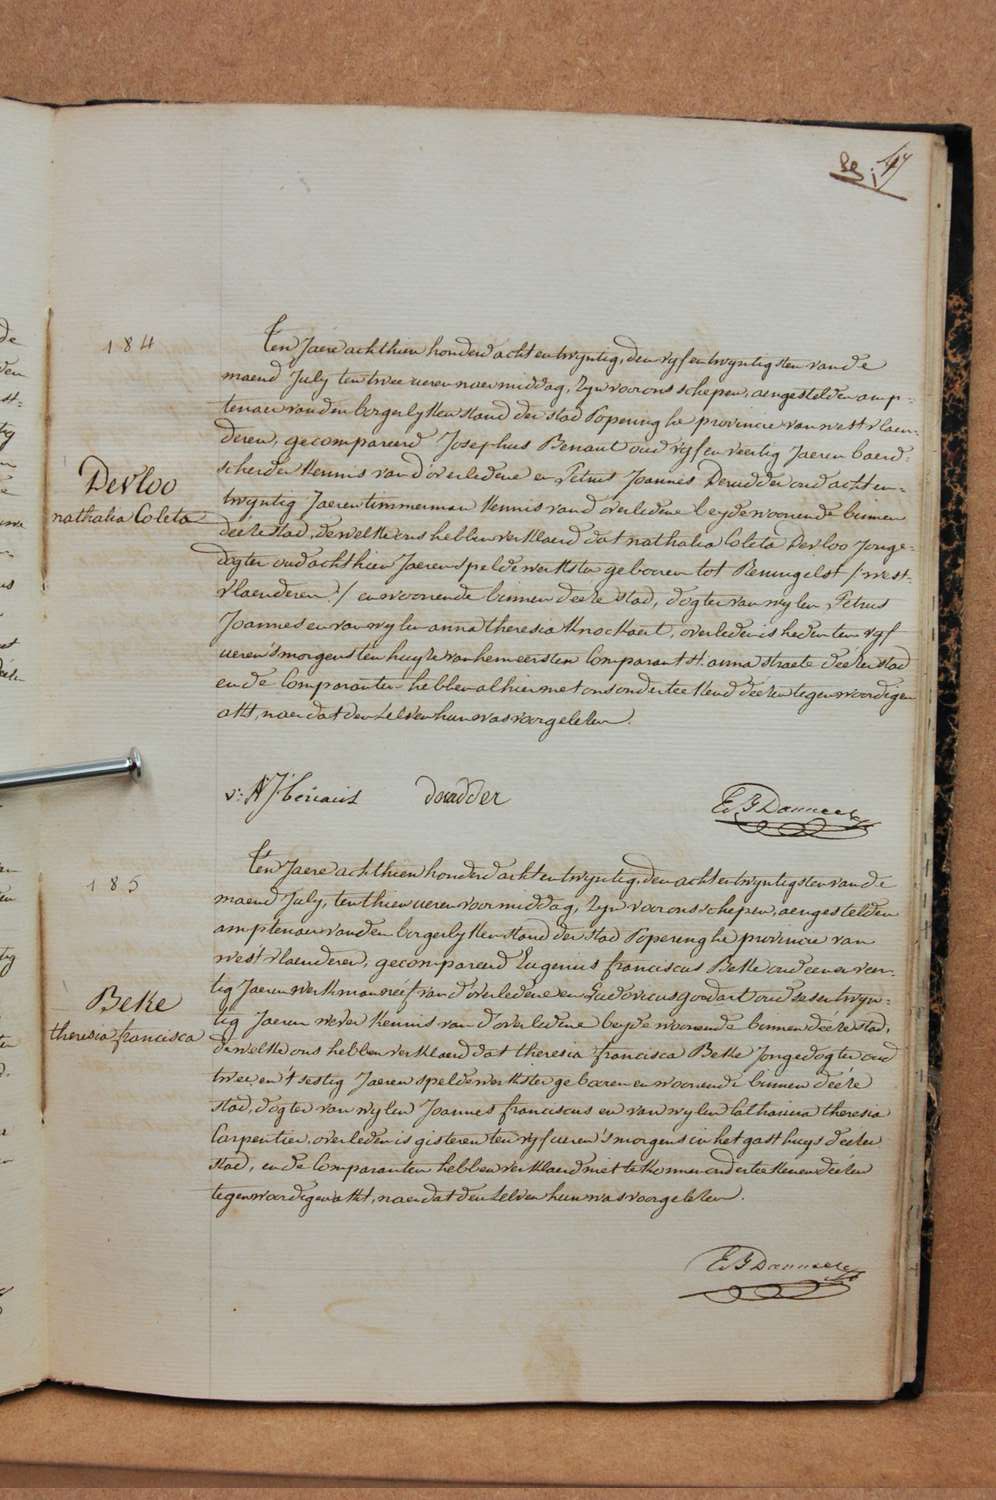 47
184
Devloo
nathalia Coleta
Ten Jaere achthien honderd acht en twyntig, den vyf en twyntigsten van de
maend July ten twee ueren naer middag, Zyn voor ons schepen, aengestelden amp-
tenaer van den borgerlyken stand der stad Poperinghe provincie van west vlaen-
deren, gecompareerd Josephus Benaut oud vyf en veertig Jaeren baerd-
scheerder kennis van d'overledene en Petrus Joannes Deradder oud acht en-
twyntig Jaeren timmerman kennis van d'overledene beyde woonende binnen
deéze stad, dewelke ons hebben verklaerd dat nathalia Coleta Devloo Jonge-
dogter oud achthien Jaeren speldewerkster gebooren tot Reningelst /:west-
vlaenderen:/ en woonende binnen deéze stad, dogter van wylen Petrus
Joannes en van wylen anna theresia Knockaert, overleden is heden ten vyf
ueren 's morgens ten huyze van den eersten Comparant st anna straete deézer stad
en de Comparanten hebben alhier met ons onderteekend deézen tegenwoordigen
akt, naer dat den zelven hun was voorgelezen.
deradder
E. J Danneel
185
Beke
theresia francisca
Ten Jaere achthien honderd acht en twyntig, den acht en twyntigsten van de
maend July, ten thien ueren voor middag, Zyn voor ons schepen, aengestelden
amptenaer van den borgerlyken stand der stad Poperinghe provincie van
west vlaenderen, gecompareerd Eugenius franciscus Beke oud een en veer-
tig Jaeren werkman neef van d'overledene en Ludovicus goedart oud ses en twyn-
tig Jaeren wever kennis van d'overledene beyde woonende binnen deéze stad,
dewelke ons hebben verklaerd dat theresia francisca Beke Jongedogter oud
twee en 't sestig Jaeren speldewerkster gebooren en woonende binnen deéze
stad, dogter van wylen Joannes franciscus en van wylen Catharina theresia
Carpentier, overleden is gisteren ten vyf ueren 's morgens in het gasthuys deézer
stad, en de Comparanten hebben verklaerd niet te konnen onderteekenen deézen
tegenwoordigen akt, naer dat den zelven hun was voorgelezen.
E. J Danneel